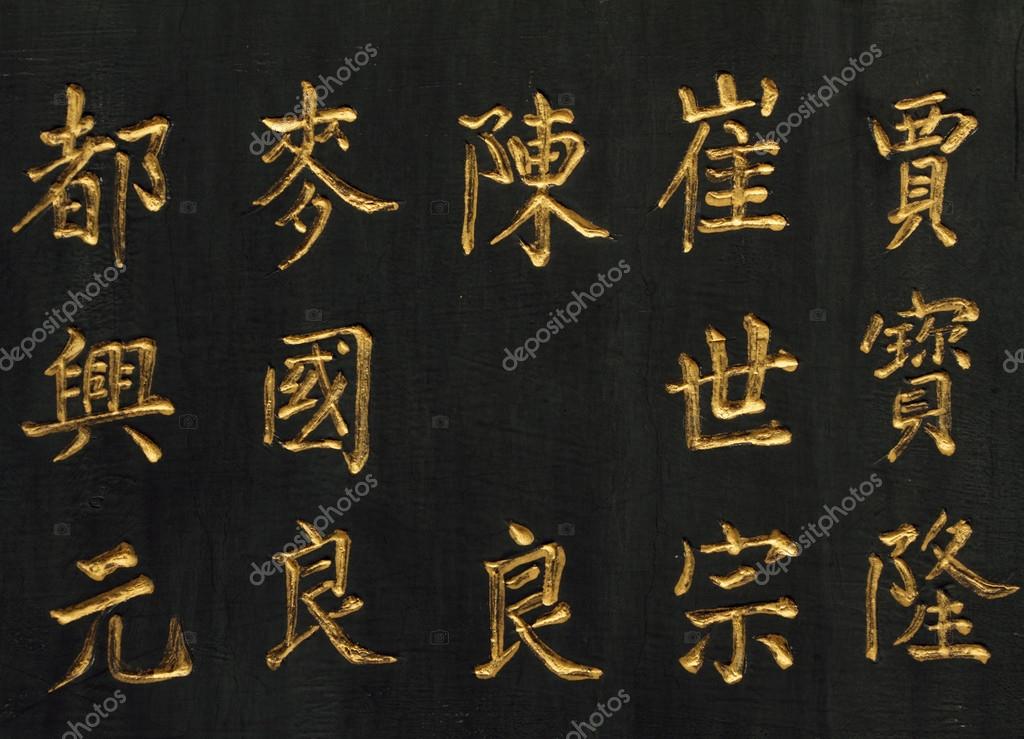 賈寶隆
崔世宗
陳良
麥國良
都興元
depositphotos
depositphotos
depositphotos
depositphotos
depositphotos
depositphotos
depositphotos
depositphotos
depositphotos
depositphotos